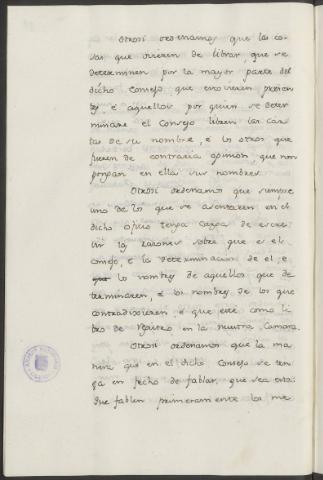 Otrosi ordenamos que las co-
sas que ovieren de librar, que se
determinen por la mayor parte del
dicho Consejo, que estovieren presen-
tes é aquellos por quien se deter
minare el Consejo libren las car-
tas de su nombre, é los otros que
fueren de contraria opinion, que non
pongan en ellas sus nombres.
Otrosi ordenamos que siempre
uno de los que se asentaren en el
dicho oficio tenga carga de escre-
vir las razones sobre que es el
consejo, é la determinacion de el, e
los nombres de aquellos que de
terminaren, é los nombres de los que
contradixieren é que esté como li
bro de registro en la nuestra Camara.
Otrosi ordenamos que la ma
nera que en el dicho Consejo se ten
ga en fecho de fablar, que sea esta:
Que fablen primeramente los me